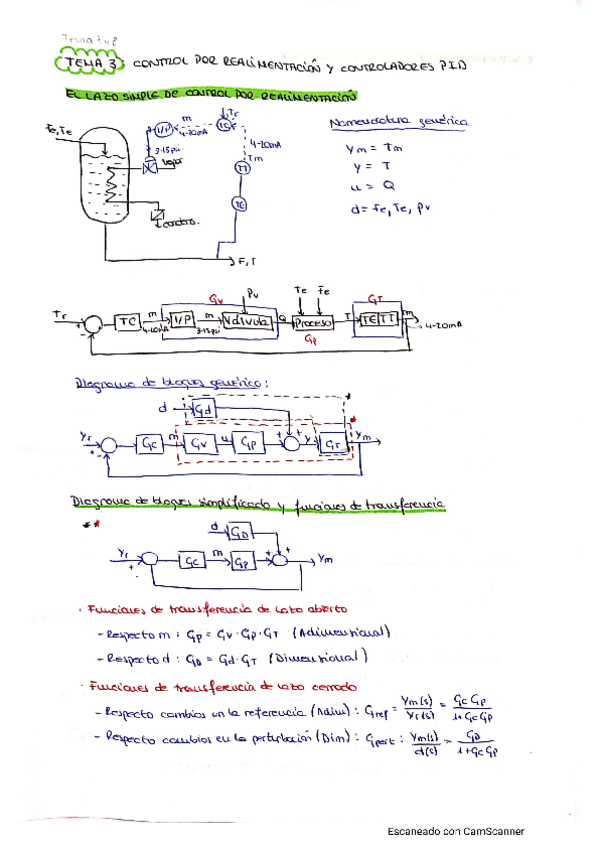 Tema 1 y 2
TEMA 3 CONTROL POR REALIMENTACIÓN Y CONTROLADORES PID
EL LAZO SIMPLE DE CONTROL POR REALIMENTACIÓN
Fe, Te
I/P
m
4-20mA
Tr
TC
4-20mA
3-15psi
vapor
Tm
TT
TE
condens.
F, T
Nomenclatura genérica
Ym = Tm
y = T
u = Q
d = Fe, Te, Pv
Tr
TC
m
4-20mA
I/P
m
3-15psi
Gv
Pv
Válvula
Q
Te Fe
Proceso
Gp
T
GT
TE TT
m
4-20mA
Diagrama de bloques genérico:
d
Gd
Yr
Gc
m
Gv
u
Gp
y
GT
Ym
Diagrama de bloques simplificado y funciones de transferencia
**
d
GD
Yr
Gc
m
Gp
Ym
· Funciones de transferencia de lazo abierto
- Respecto m : Gp = Gv · Gp · GT (Adimensional)
- Respecto d : GD = Gd · GT (Dimensional)
· Funciones de transferencia de lazo cerrado
- Respecto cambios en la referencia (Adim) : Gref = Ym(s)/Yr(s) = GcGp/1+GcGp
- Respecto cambios en la perturbación (Dim) : Gpert : Ym(s)/d(s) = GD/1+GcGp
Escaneado con CamScanner